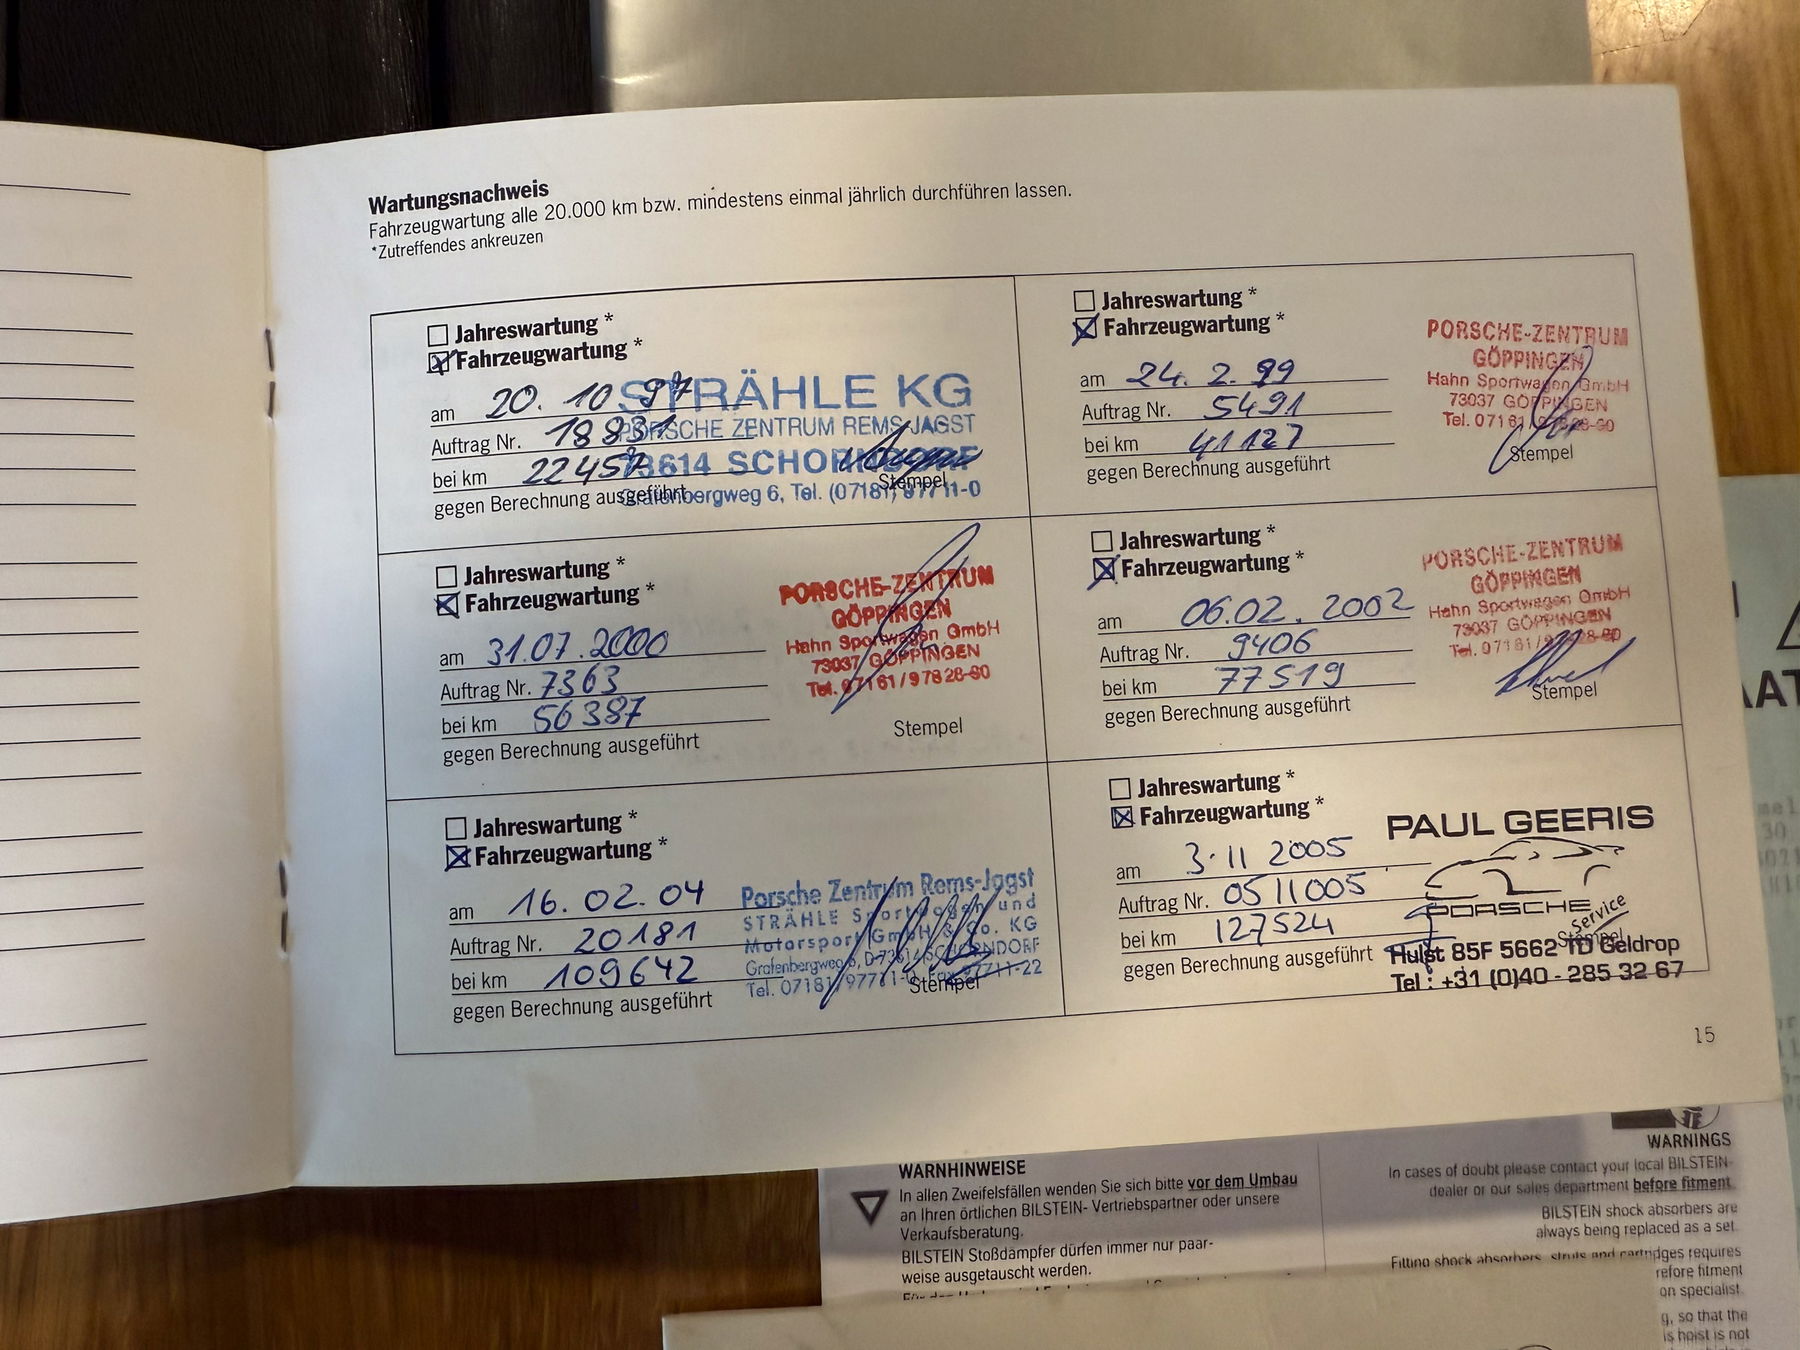 Wartungsnachweis
Fahrzeugwartung alle 20.000 km bzw. mindestens einmal jährlich durchführen lassen.
*Zutreffendes ankreuzen
Jahreswartung *
Fahrzeugwartung *
am 20. 10 97
Auftrag Nr. 18831
bei km 22457
gegen Berechnung ausgeführt
STRÄHLE KG
PORSCHE ZENTRUM REMS-JAGST
73614 SCHORNDORF
Grafenbergweg 6, Tel. (07181) 97711-0
Stempel
Jahreswartung *
Fahrzeugwartung *
am 24. 2. 99
Auftrag Nr. 5491
bei km 41127
gegen Berechnung ausgeführt
PORSCHE-ZENTRUM
GÖPPINGEN
Hahn Sportwagen GmbH
73037 GÖPPINGEN
Tel. 07161/97828-90
Stempel
Jahreswartung *
Fahrzeugwartung *
am 31.07.2000
Auftrag Nr. 7363
bei km 56387
gegen Berechnung ausgeführt
PORSCHE-ZENTRUM
GÖPPINGEN
Hahn Sportwagen GmbH
73037 GÖPPINGEN
Tel. 07161/97828-90
Stempel
Jahreswartung *
Fahrzeugwartung *
am 06.02.2002
Auftrag Nr. 9406
bei km 77519
gegen Berechnung ausgeführt
PORSCHE-ZENTRUM
GÖPPINGEN
Hahn Sportwagen GmbH
73037 GÖPPINGEN
Tel. 07161/97828-90
Stempel
Jahreswartung *
Fahrzeugwartung *
am 16.02.04
Auftrag Nr. 20181
bei km 109642
gegen Berechnung ausgeführt
Porsche Zentrum Rems-Jagst
STRÄHLE Sportwagen und
Motorsport GmbH & Co. KG
Grafenbergweg 6, D-73614 SCHORNDORF
Tel. 07181/97711-0, Fax 97711-22
Stempel
Jahreswartung *
Fahrzeugwartung *
am 3·11 2005
Auftrag Nr. 0511005
bei km 127524
gegen Berechnung ausgeführt
PAUL GEERIS
PORSCHE
Service
Stempel
Hulst 85F 5662 TD Geldrop
Tel : +31 (0)40 - 285 32 67
15
WARNHINWEISE
In allen Zweifelsfällen wenden Sie sich bitte vor dem Umbau
an Ihren örtlichen BILSTEIN- Vertriebspartner oder unsere
Verkaufsberatung.
BILSTEIN Stoßdämpfer dürfen immer nur paar-
weise ausgetauscht werden.
WARNINGS
In cases of doubt please contact your local BILSTEIN-
dealer or our sales department before fitment.
BILSTEIN shock absorbers are
always being replaced as a set.
Fitting shock absorbers, struts and cartridges requires
refore fitment
on specialist.
g, so that the
is hoist is not